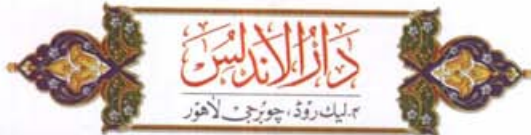 دَارُالاَندلُسْ
۴.لیک روڈ، چوبرجی لاھور